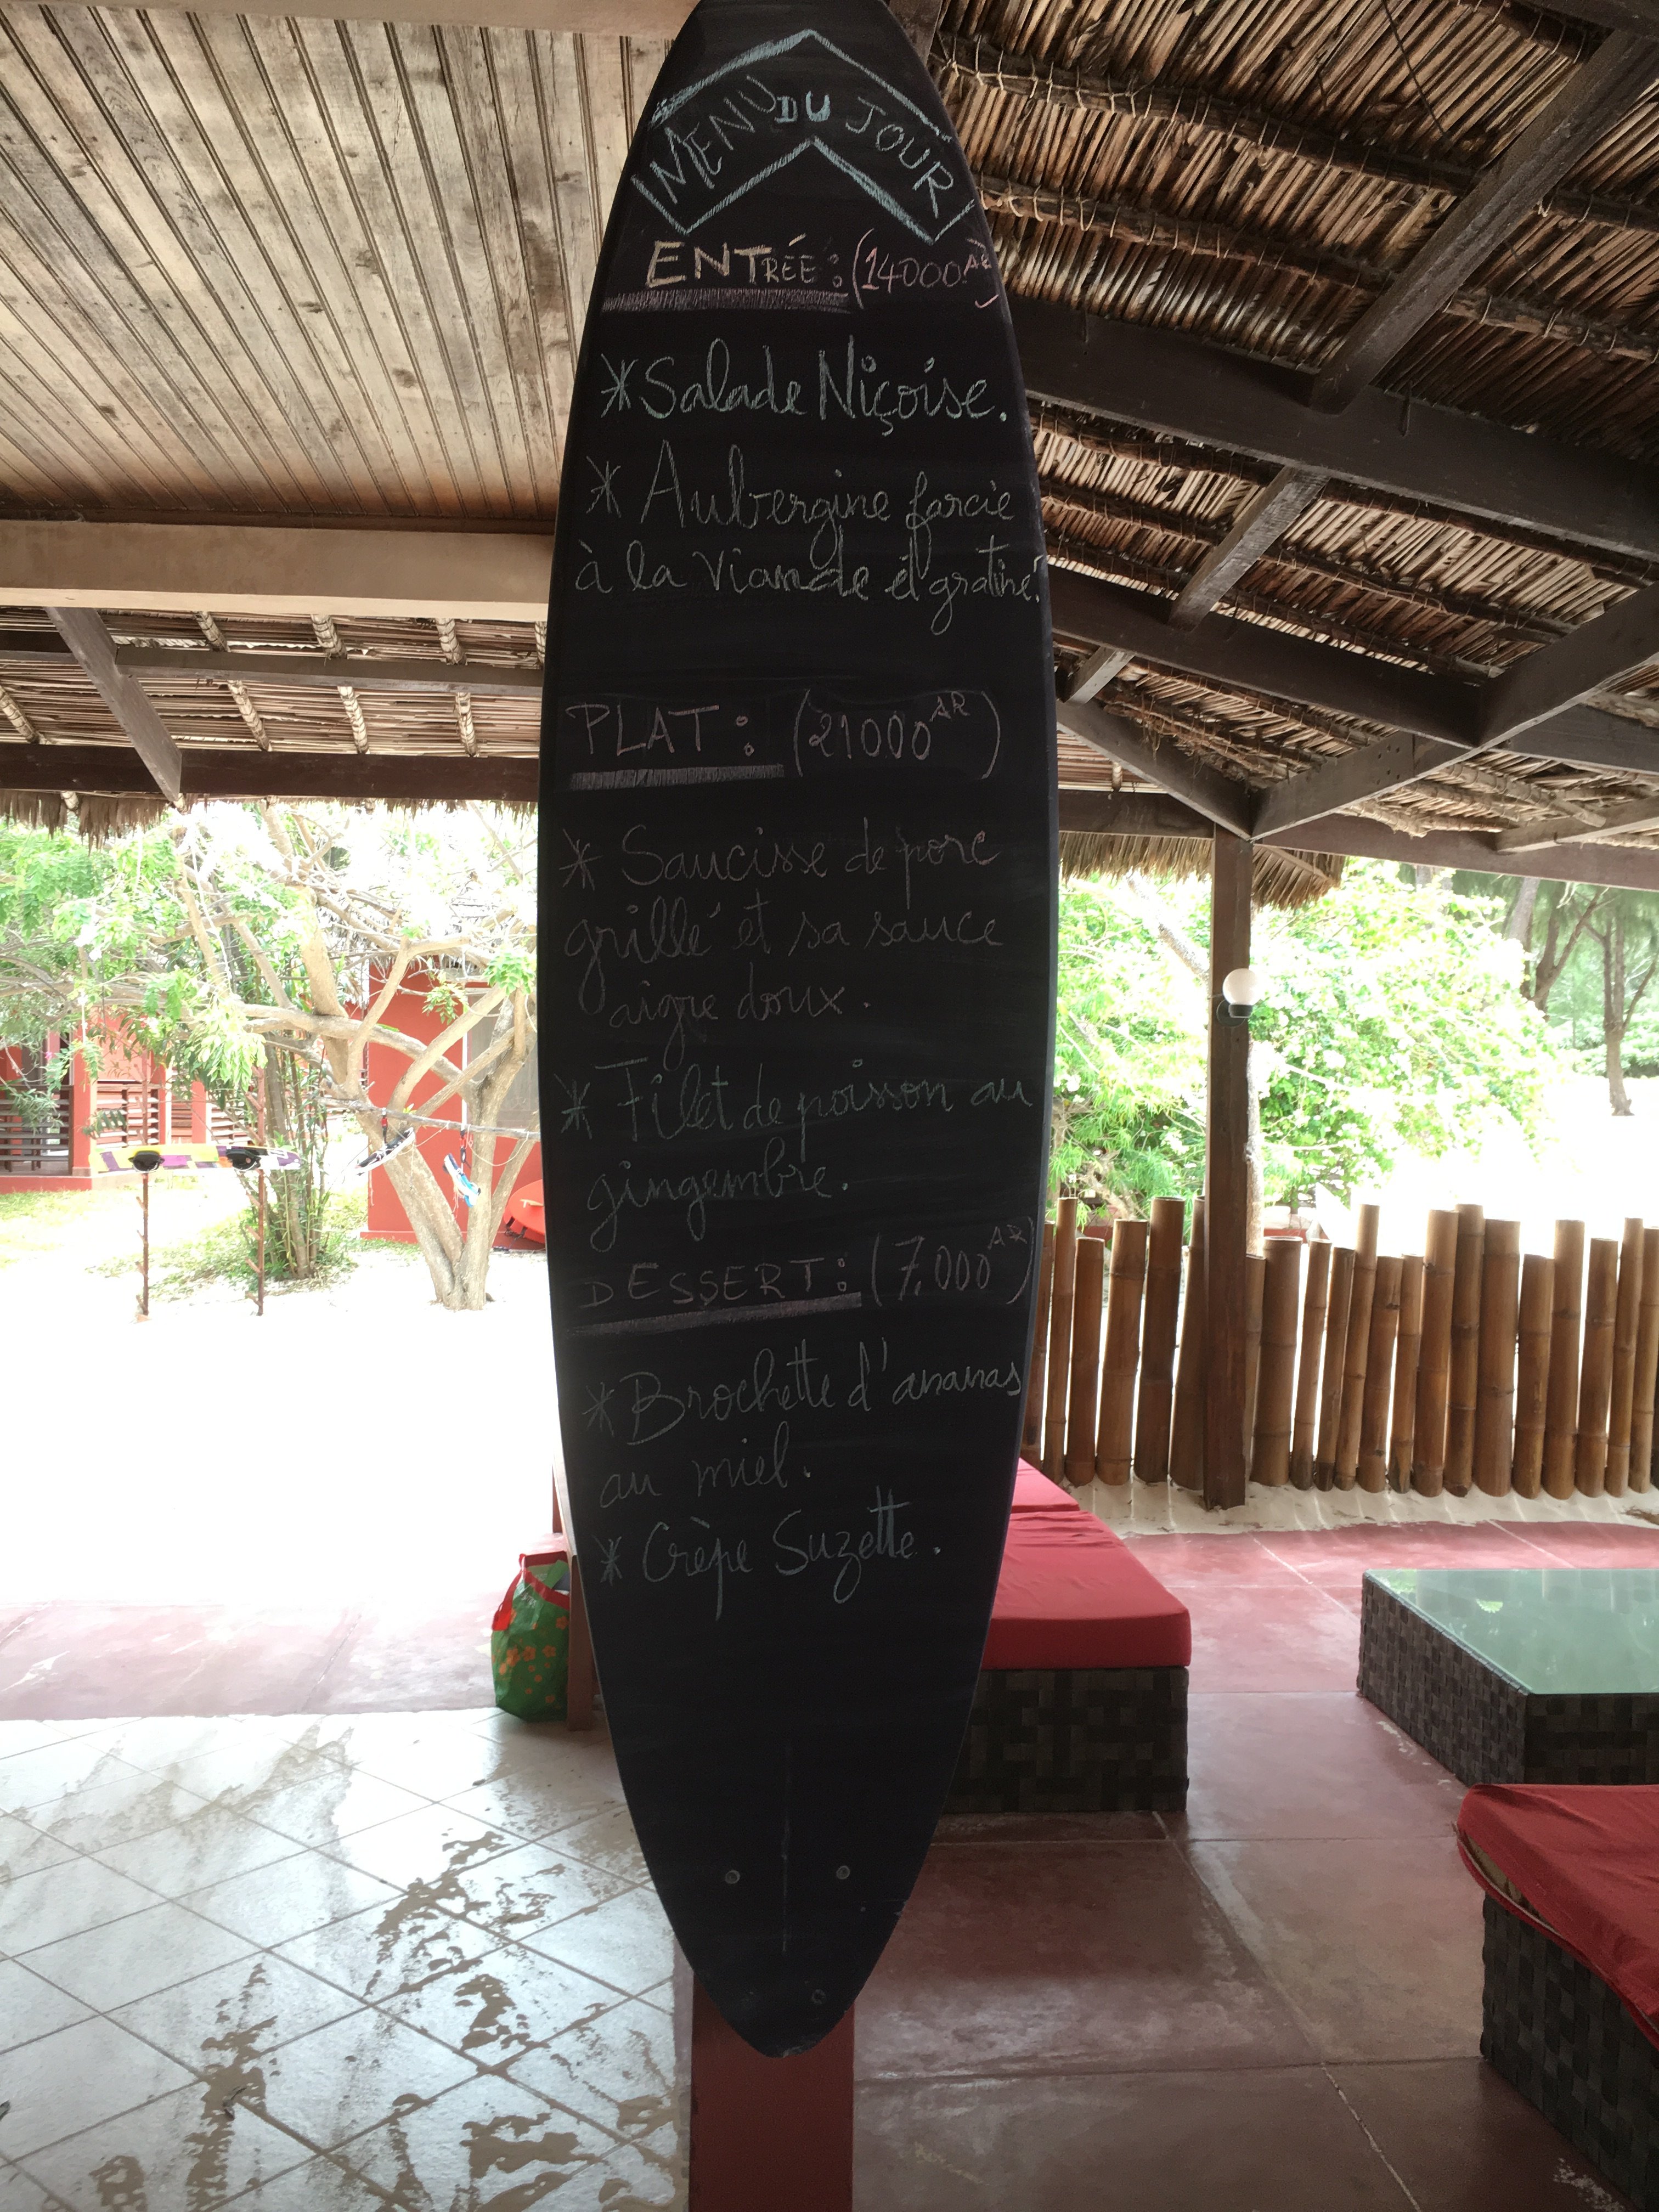 MENU DU JOUR
ENTRÉE : (14000 AR)
* Salade Niçoise.
* Aubergine farcie
à la Viande et gratiné.
PLAT : (21000 AR)
* Saucisse de porc
grillé et sa sauce
aigre doux.
* Filet de poisson au
gingembre.
DESSERT : (7.000 AR)
* Brochette d'ananas
au miel.
* Crèpe Suzette.